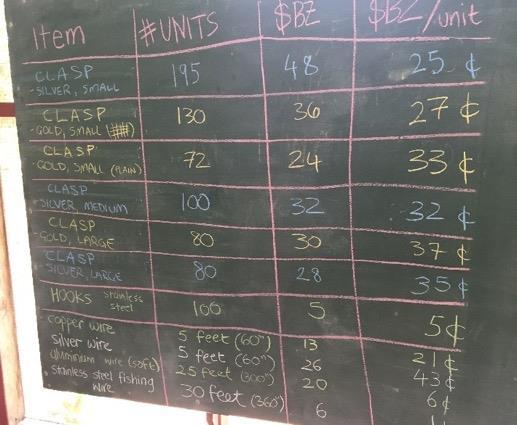 Item #UNITS $BZ $BZ/unit
CLASP
-SILVER, SMALL 195 48 25 ¢
CLASP
-GOLD, SMALL (##) 130 36 27 ¢
CLASP
-GOLD, SMALL (PLAIN) 72 24 33 ¢
CLASP
-SILVER, MEDIUM 100 32 32 ¢
CLASP
-GOLD, LARGE 80 30 37 ¢
CLASP
SILVER, LARGE 80 28 35 ¢
HOOKS stainless
steel 100 5 5¢
copper wire 5 feet (60") 13 21¢
silver wire 5 feet (60") 26 43¢
aluminium wire (soft) 25 feet (300") 20 6¢
stainless steel fishing
wire 30 feet (360") 6